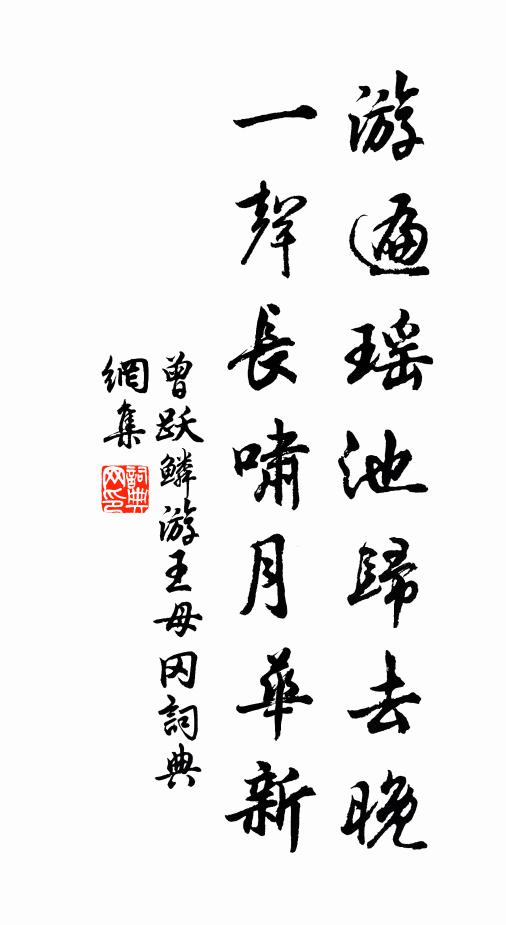 游遍瑶池歸去晚
一聲長嘯月華新
曾跃鳞游王母冈詞典
網集
詞典網印